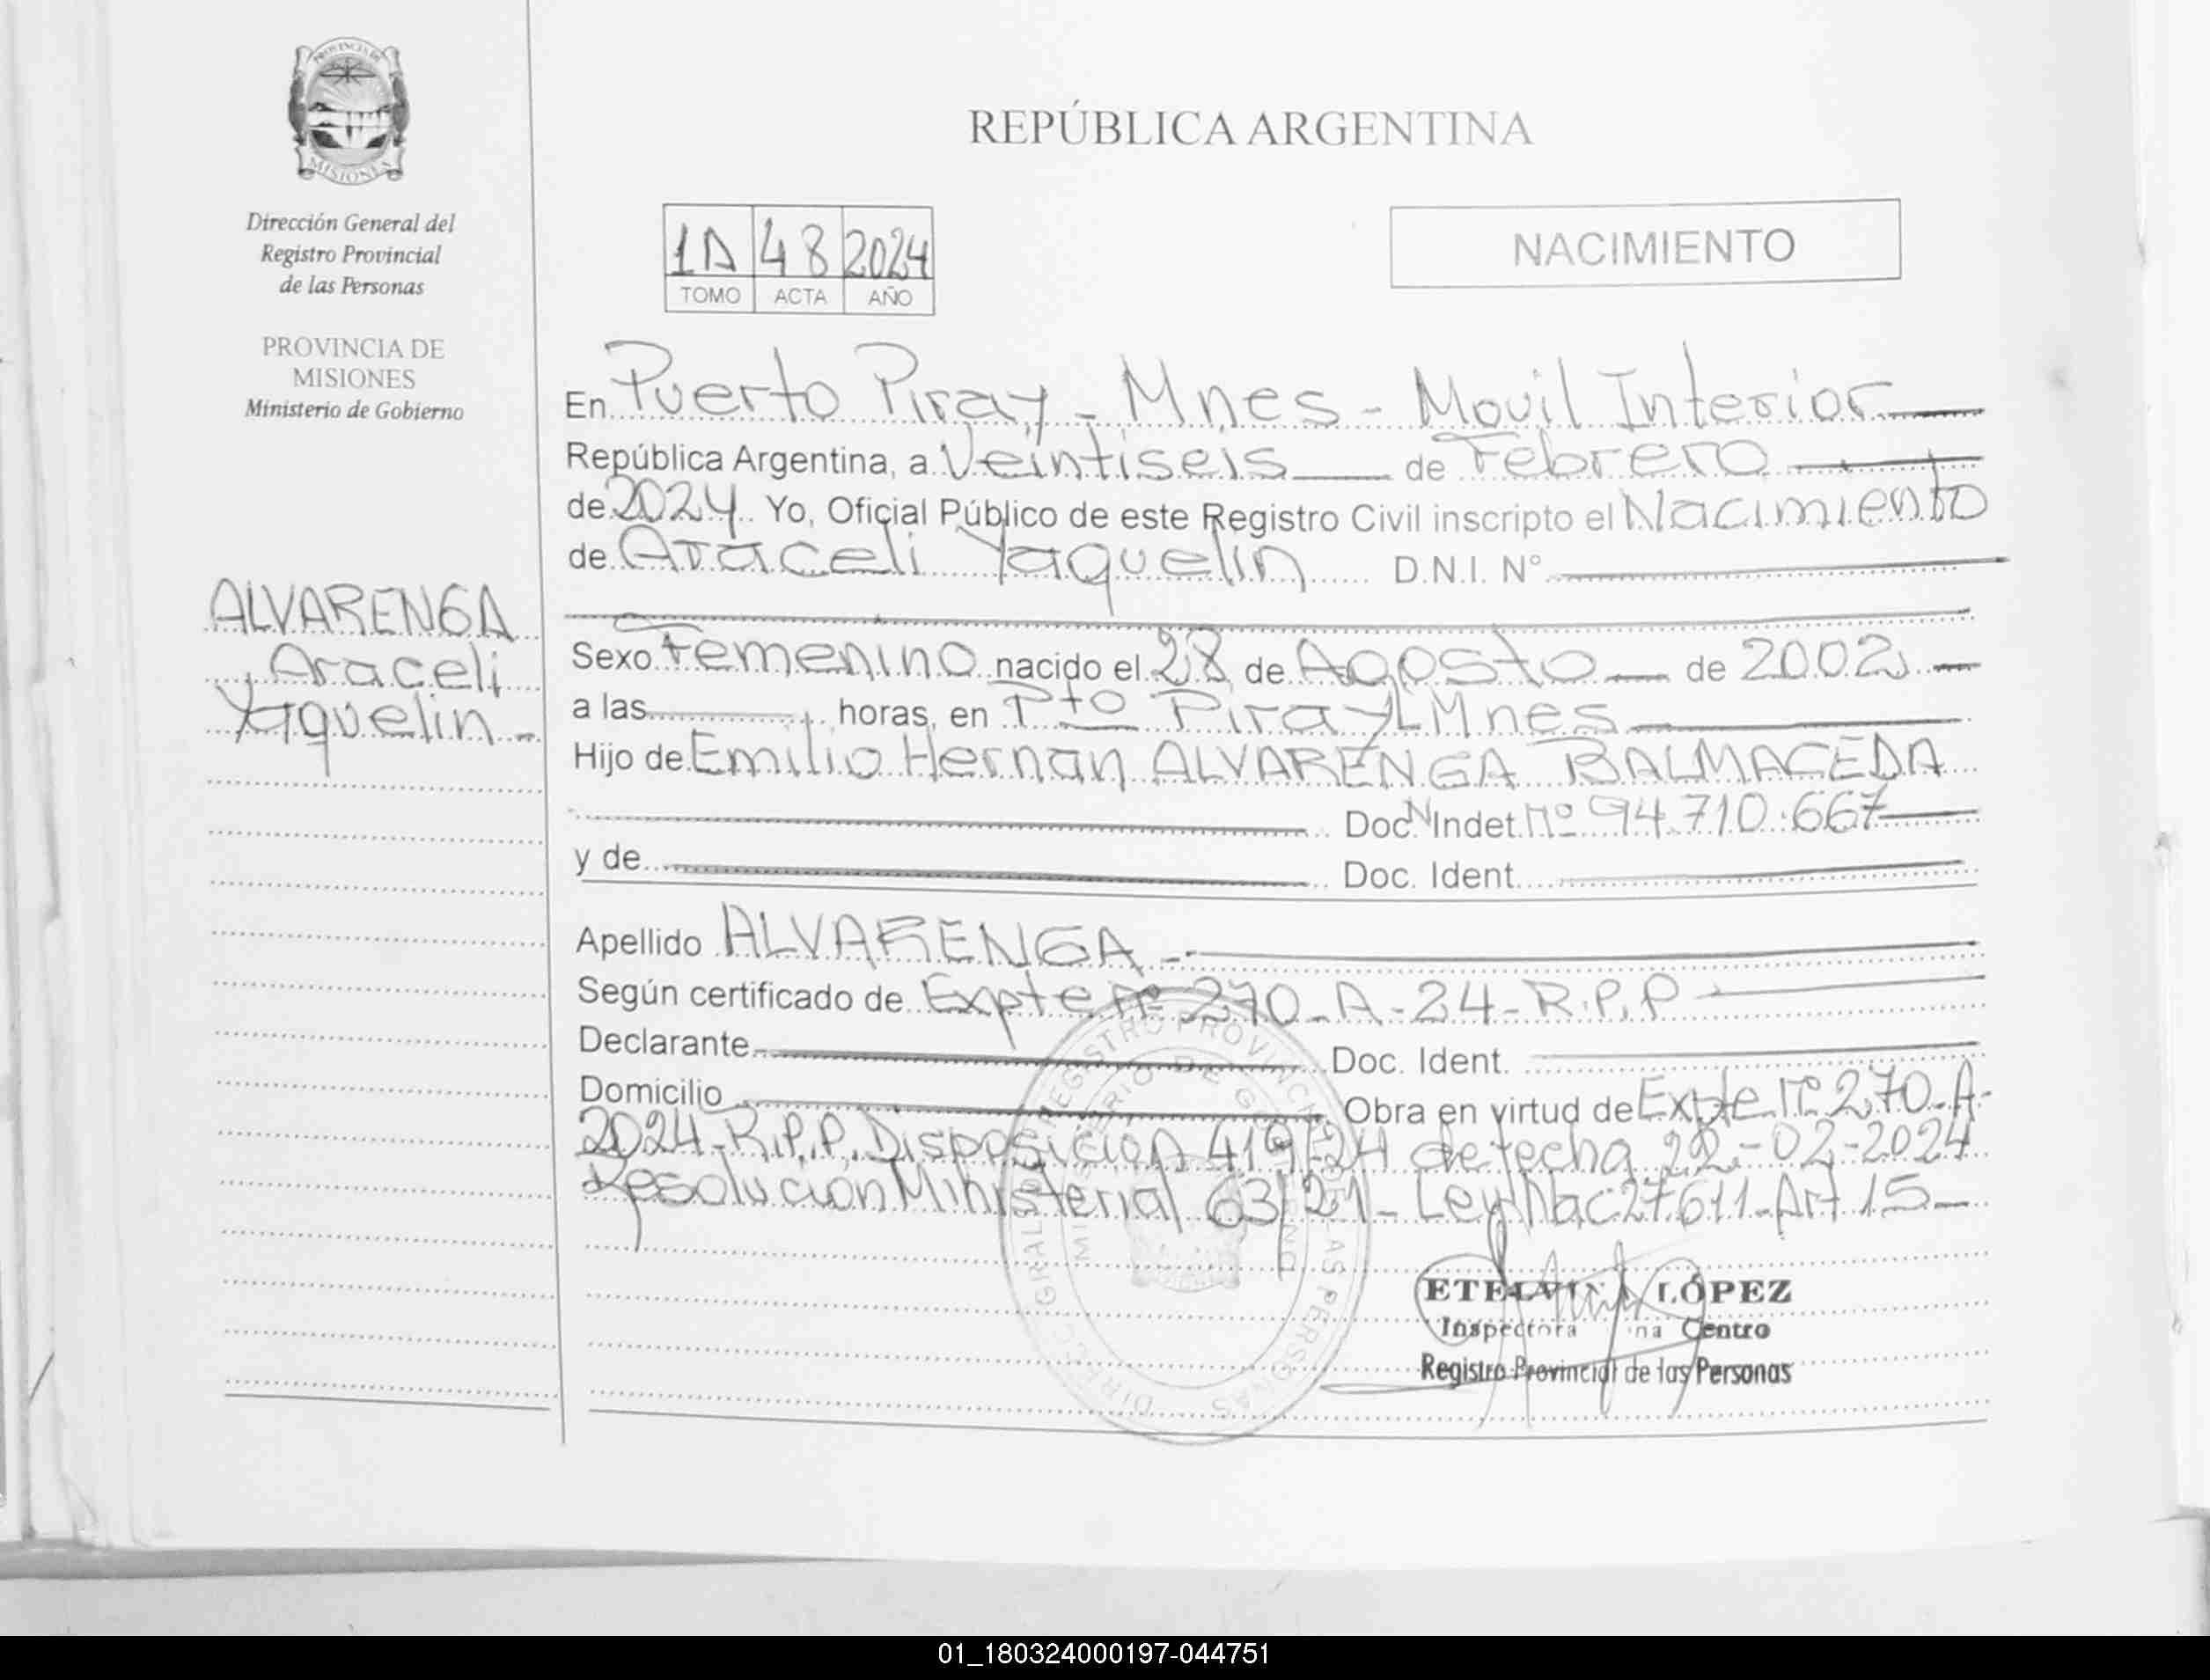 PROVINCIA DE
MISIONES
Dirección General del
Registro Provincial
de las Personas
PROVINCIA DE
MISIONES
Ministerio de Gobierno
ALVARENGA
Araceli
Yaquelin -
REPÚBLICA ARGENTINA
1D 48 2024
TOMO ACTA AÑO
NACIMIENTO
En Puerto Piray - Mnes - Movil Interior
República Argentina, a Veintiseis de Febrero
de 2024 Yo, Oficial Público de este Registro Civil inscripto el Nacimiento
de Araceli Yaquelin D.N.I. N°
Sexo Femenino nacido el 28 de Agosto de 2002
a las horas, en Pto Piray - Mnes
Hijo de Emilio Hernan ALVARENGA BALMACEDA
Doc. N Indet. N° 94.710.667
y de Doc. Ident.
Apellido ALVARENGA
Según certificado de Expte N° 270 - A - 24 - R.P.P
Declarante Doc. Ident.
Domicilio Obra en virtud de Expte N° 270 - A -
2024 - R.P.P. Disposición 419/24 de fecha 22 - 02 - 2024
Resolución Ministerial 63/21 - Ley Nac 27611 - Art 15 -
DIREC. GRAL. DEL REGISTRO PROVINCIAL DE LAS PERSONAS
MINISTERIO DE GOBIERNO
ETELVINA LÓPEZ
Inspectora Centro
Registro Provincial de las Personas
01_180324000197-044751